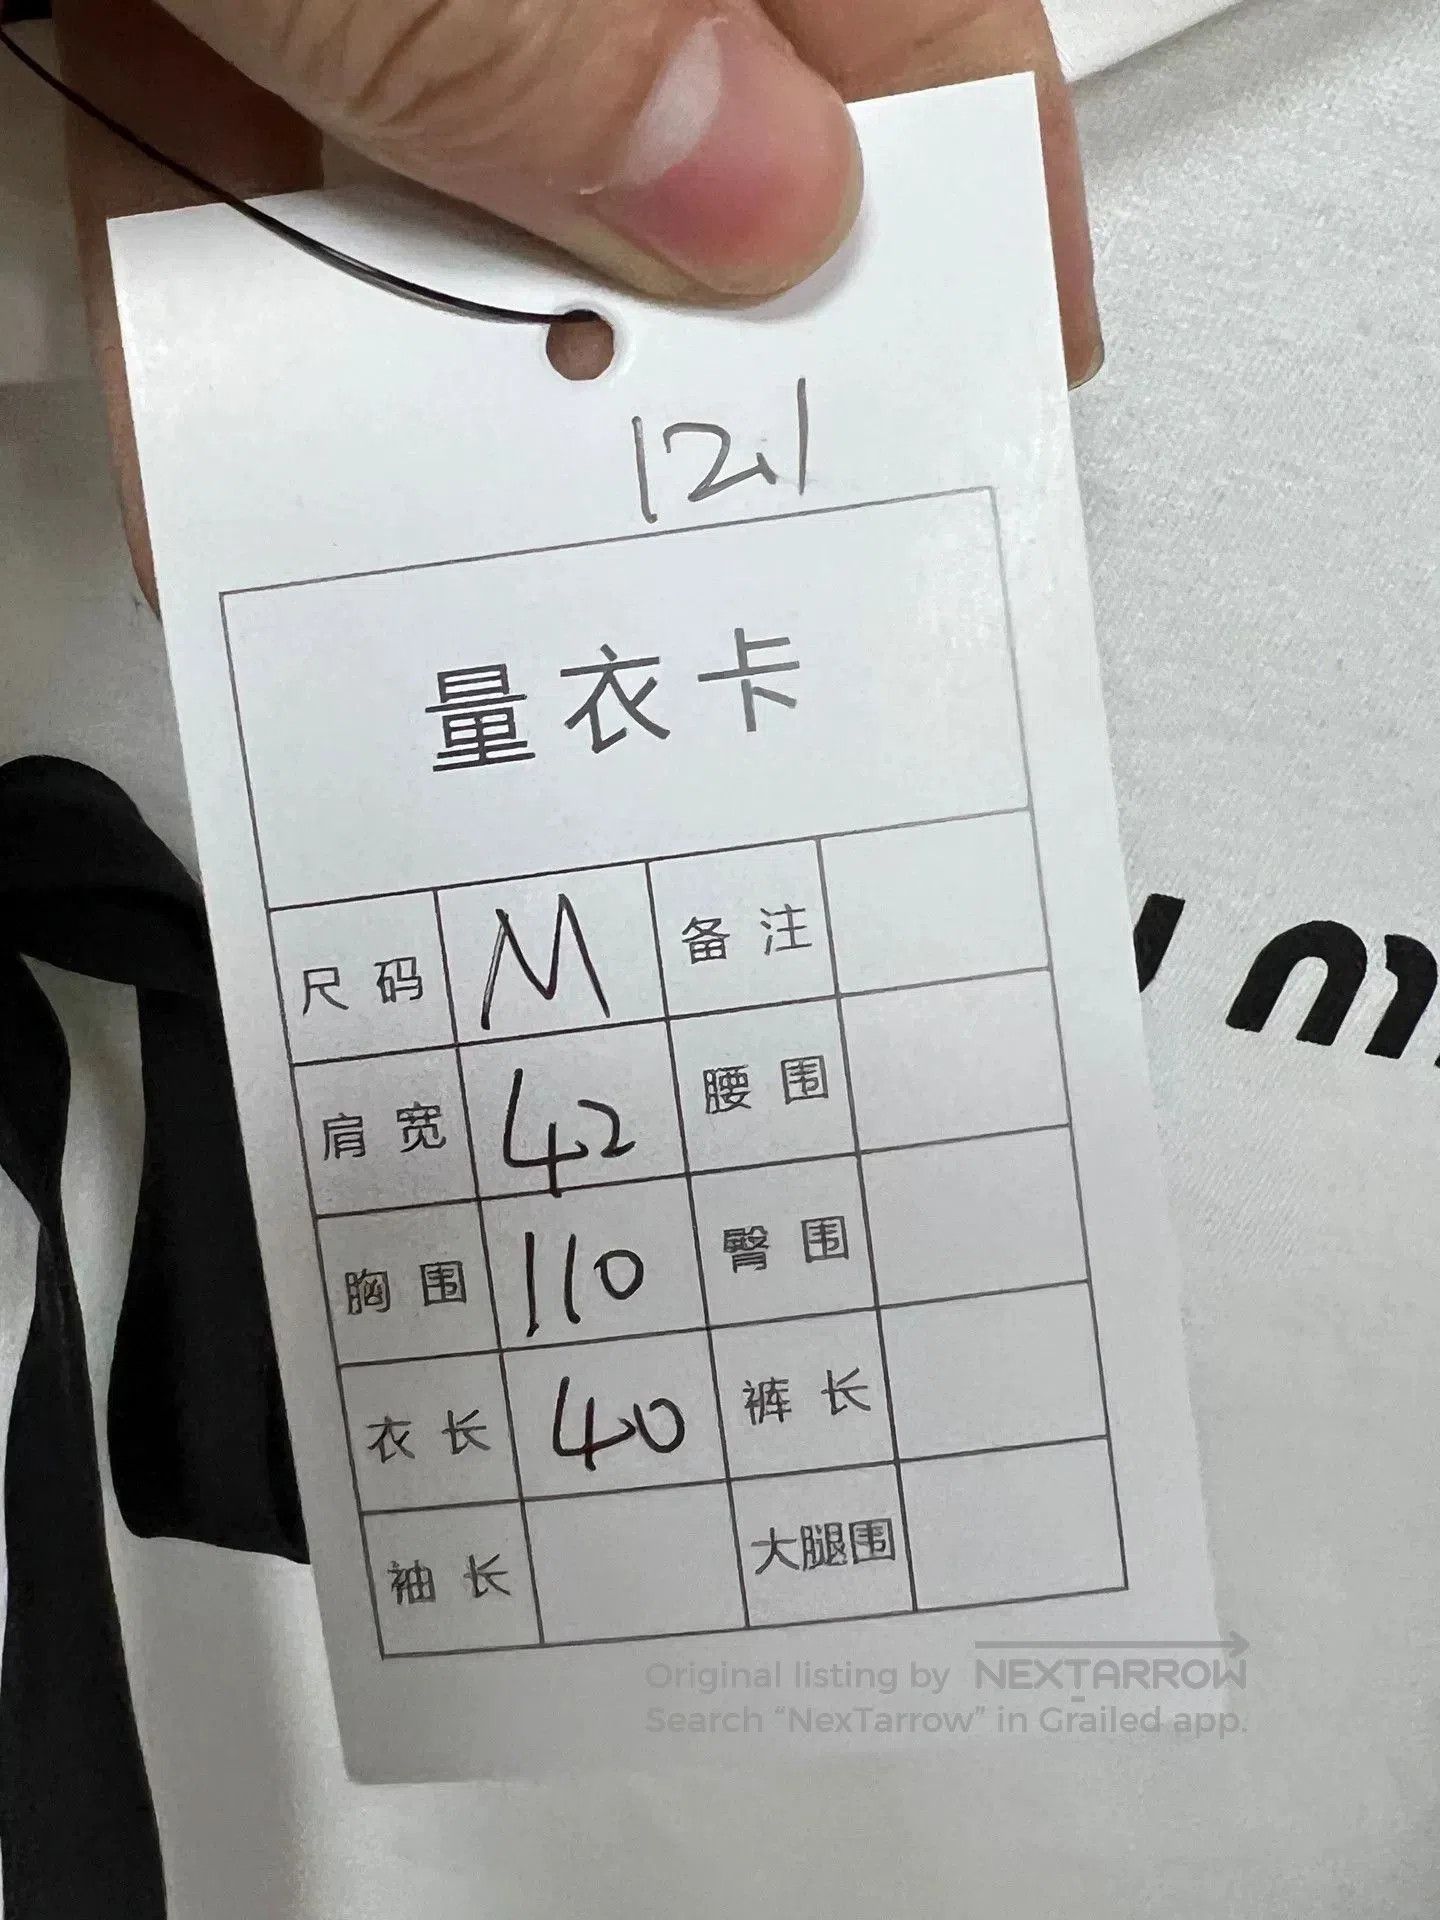 121
量衣卡
尺码 M 备注
肩宽 42 腰围
胸围 110 臀围
衣长 40 裤长
袖长 大腿围
Original listing by NEXTARROW
Search “NexTarrow” in Grailed app.